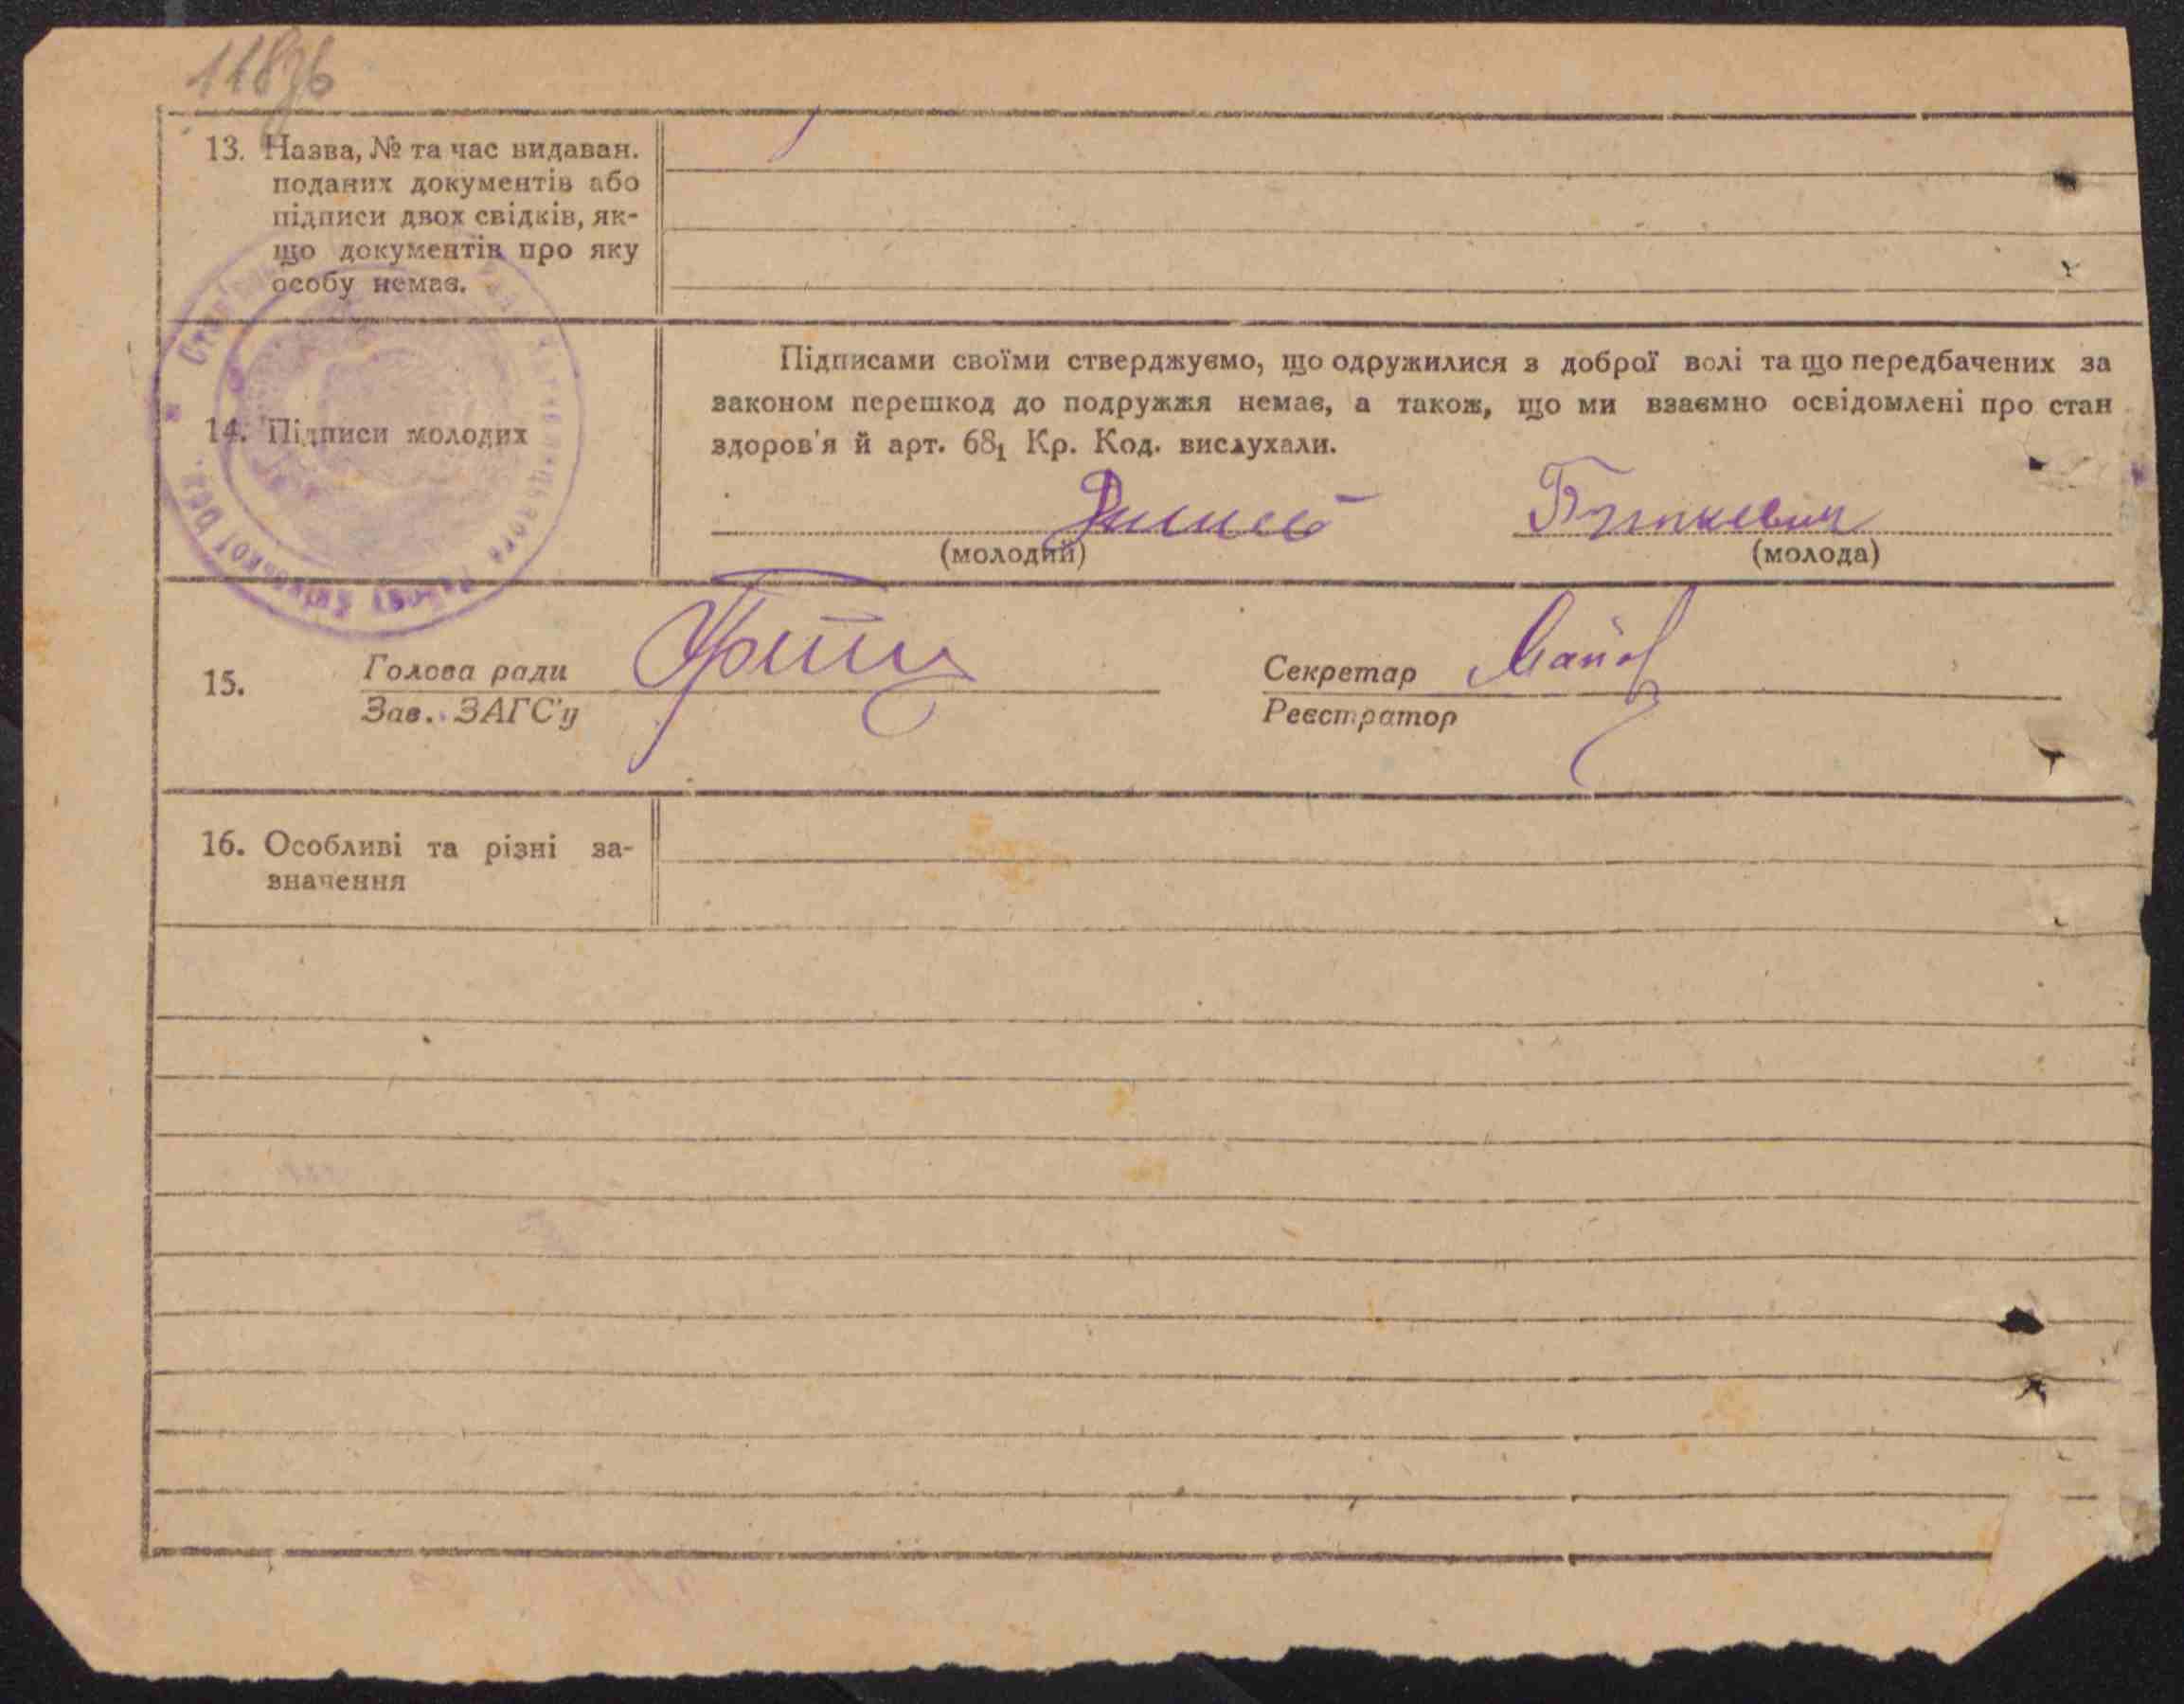 11876
13. Назва, № та час видаван.
поданих документів або
підписи двох свідків, як-
що документів про яку
особу немає.
14. Підписи молодих
Підписами своїми стверджуємо, що одружилися з доброї волі та що передбачених за
законом перешкод до подружжя немає, а також, що ми взаємно освідомлені про стан
здоров'я й арт. 68₁ Кр. Код. вислухали.
(молодий)
(молода)
15. Голова ради
Зав. ЗАГС'у
Секретар
Реєстратор
16. Особливі та різні за-
значення